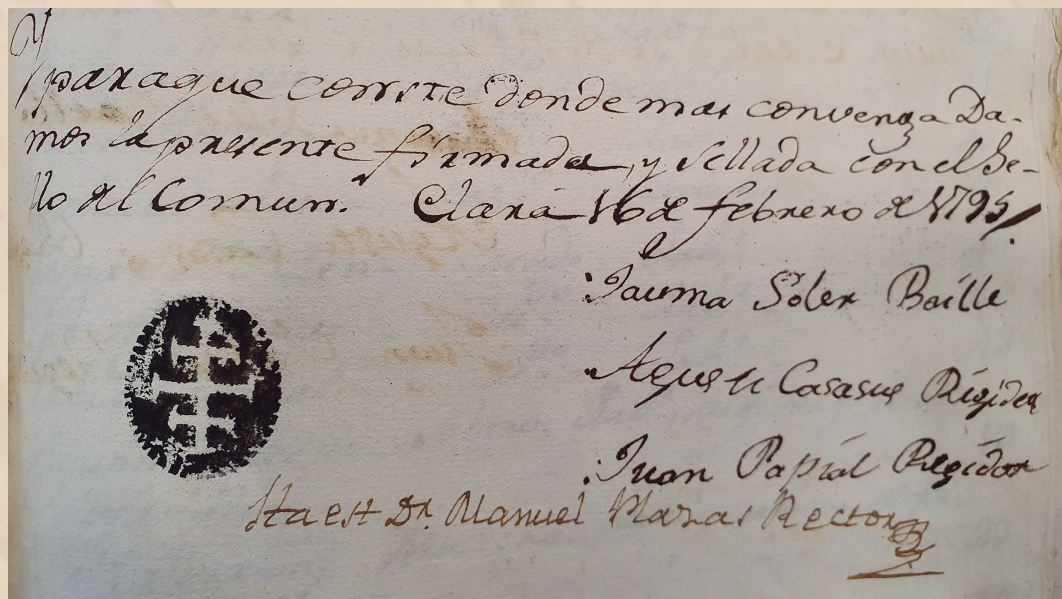 Y
para que conste donde mas convenga Da-
mos la presente firmada, y sellada con el Se-
llo del Comun. Clará 16 de febrero de 1795
Jauma Soler Baille
Agusti Casasus Rigidor
Juan Papiol Regidor
Ita est Dr. Manuel Rector